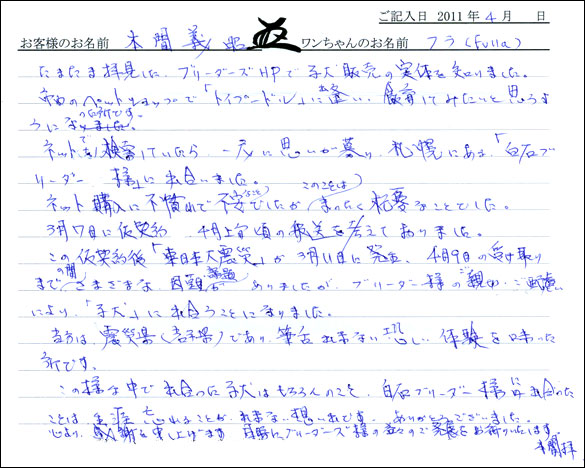 ご記入日 2011年 4月 日
お客様のお名前 本間義 ワンちゃんのお名前 フラ(Fulla)
たまたま拝見した、ブリーダーズHPで子犬販売の実体を知りました。
市内のペットショップで「トイプードル」に逢い、飼育してみたいと思うよ
うになった所です。
ネットで検索していたら、一気に思いが募り、札幌にある、「白石ブ
リーダー 様」に出合いました。
ネット購入に不慣れで不安なことでしたが(このことは)まったく杞憂なことでした。
3月7日に仮契約 4月上旬頃の搬送を考えておりました。
この仮契約後「東日本大震災」が3月11日に発生、4月9日の受け取り
までの間さまざまな 課題がありましたが、ブリーダー様の親切、ご配慮
により、「子犬」に出合うことになりました。
当方は、震災県(岩手県)であり、筆舌出来ない恐しい体験を味わった
所です。
この様な中で出合った子犬はもちろんのこと、白石ブリーダー様に出合った
ことは、生涯忘れることが出来ない想い出です。ありがとうございました。
心より、感謝を申し上げます 同時にブリーダーズ様の益々のご発展をお祈りいたします。
本間拝